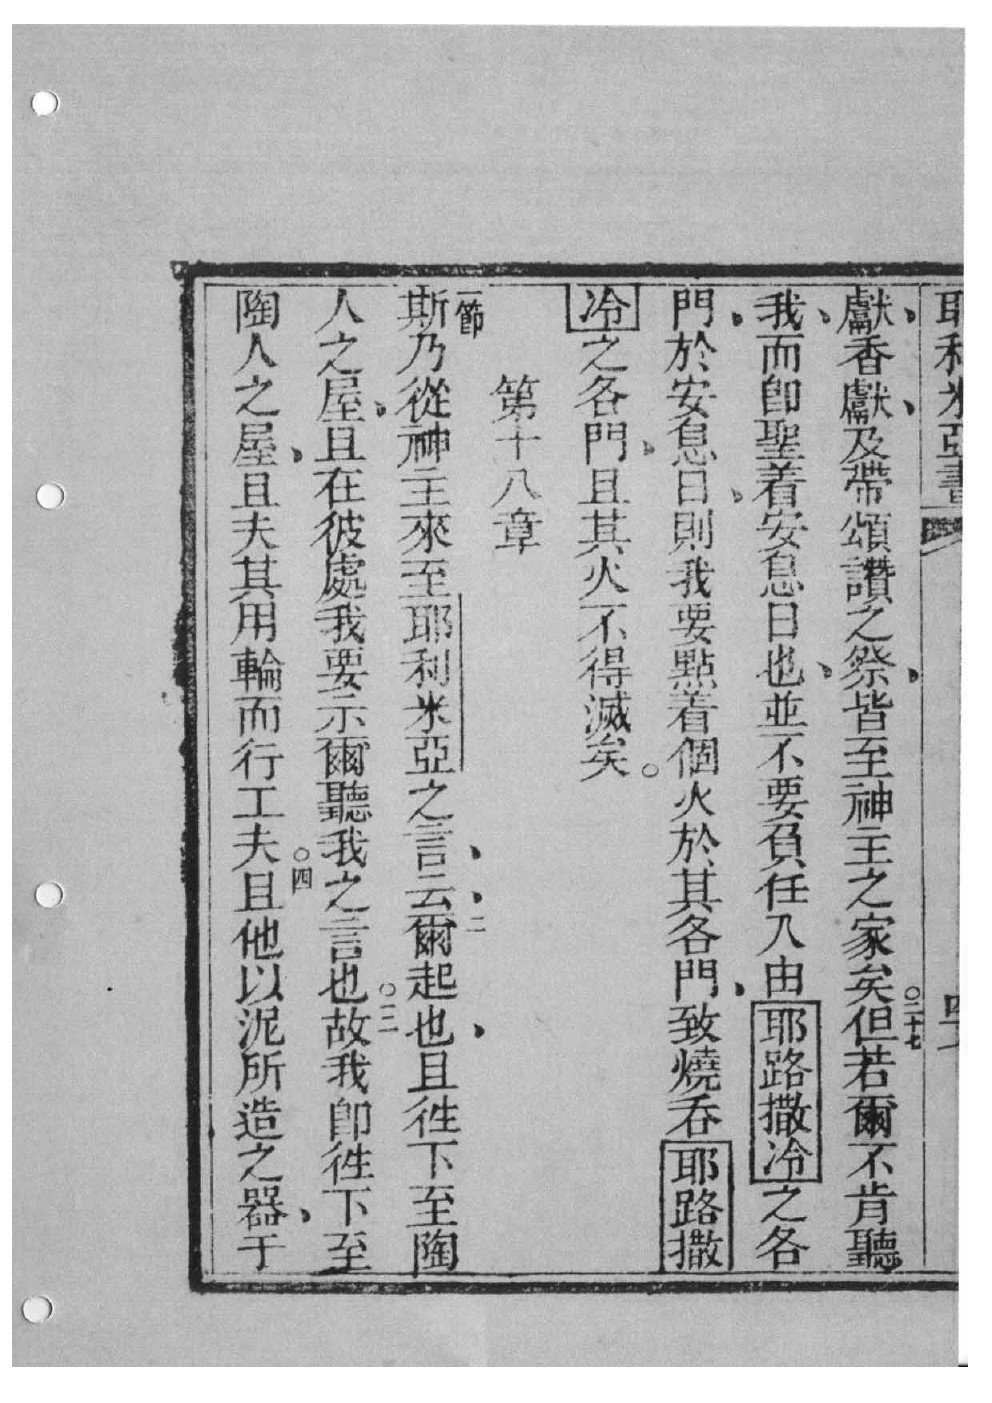 耶利米亞書
獻香獻及帶頌讚之祭皆至神主之家矣○二十七但若爾不肯聽
我而卽聖着安息日也並不要負任入由耶路撒冷之各
門於安息日則我要點着個火於其各門致燒吞耶路撒
冷之各門且其火不得滅矣○
第十八章
一節斯乃從神主來至耶利米亞之言云二爾起也且徃下至陶
人之屋且在彼處我要示爾聽我之言也○三故我卽徃下至
陶人之屋且夫其用輪而行工夫○四且他以泥所造之器于